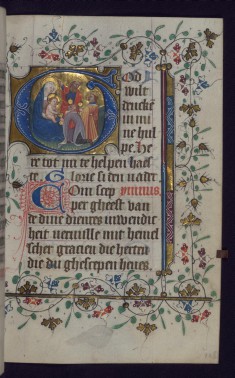 God
wilt
dencke
in mi
ne hul
pe he
re tot mi te helpen haes
te Glorie si den vader
Com scep ympnus
per gheest van
de dine dienres inwendic
heit vervulle mit hemel
scher gracien die herten
die du ghescepen heves